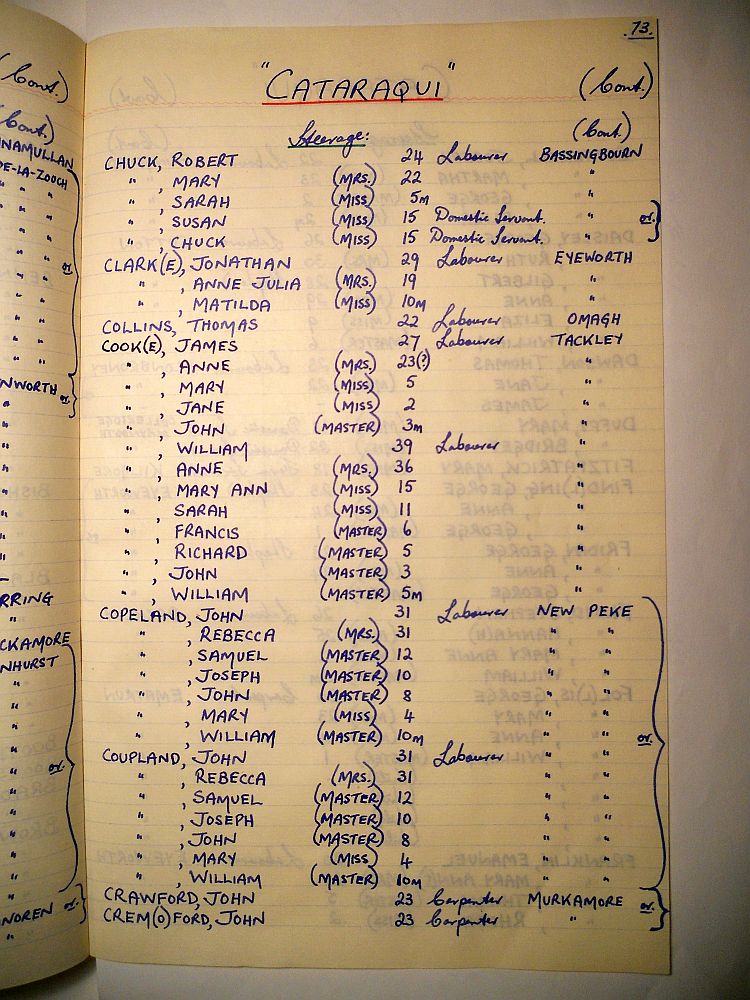 73.
"CATARAQUI" (Cont.)
Steerage: (Cont)
CHUCK, ROBERT 24 Labourer BASSINGBOURN
" , MARY (MRS.) 22 "
" , SARAH (MISS) 5M "
" , SUSAN (MISS) 15 Domestic Servant. " or.
" , CHUCK (MISS) 15 Domestic Servant. "
CLARK(E), JONATHAN 29 Labourer EYEWORTH
" , ANNE JULIA (MRS.) 19 "
" , MATILDA (MISS) 10M "
COLLINS, THOMAS 22 Labourer OMAGH
COOK(E), JAMES 27 Labourer TACKLEY
" , ANNE (MRS.) 23(?) "
" , MARY (MISS) 5 "
" , JANE (MISS) 2 "
" , JOHN (MASTER) 3M "
" , WILLIAM 39 Labourer "
" , ANNE (MRS.) 36 "
" , MARY ANN (MISS) 15 "
" , SARAH (MISS) 11 "
" , FRANCIS (MASTER) 6 "
" , RICHARD (MASTER) 5 "
" , JOHN (MASTER) 3 "
" , WILLIAM (MASTER) 5M "
COPELAND, JOHN 31 Labourer NEW PEKE
" , REBECCA (MRS.) 31 " "
" , SAMUEL (MASTER) 12 " "
" , JOSEPH (MASTER) 10 " "
" , JOHN (MASTER) 8 " "
" , MARY (MISS) 4 " "
" , WILLIAM (MASTER) 10M " " or.
COUPLAND, JOHN 31 Labourer " "
" , REBECCA (MRS.) 31 " "
" , SAMUEL (MASTER) 12 " "
" , JOSEPH (MASTER) 10 " "
" , JOHN (MASTER) 8 " "
" , MARY (MISS) 4 " "
" , WILLIAM (MASTER) 10M " "
CRAWFORD, JOHN 23 Carpenter MURKAMORE or.
CREM(O)FORD, JOHN 23 Carpenter "